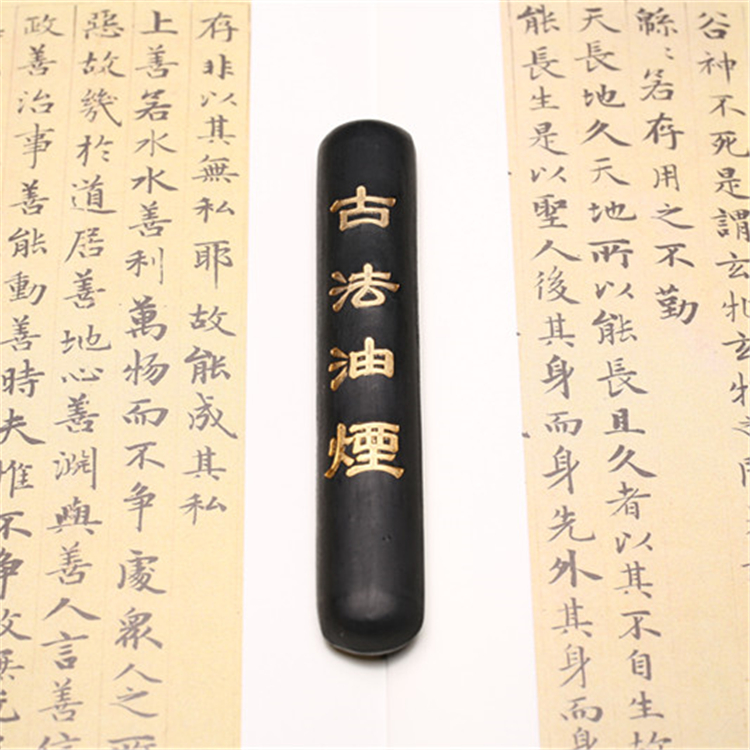 谷神不死是謂玄牝玄牝之
緜〻若存用之不勤
天長地久天地所以能長且久者以其不自生故
能長生是以聖人後其身而身先外其身而
古法油煙
存非以其無私耶故能成其私
上善若水水善利萬物而不争處衆人之所
惡故幾於道居善地心善淵與善人言善信
政善治事善能動善時夫惟不争故無尤